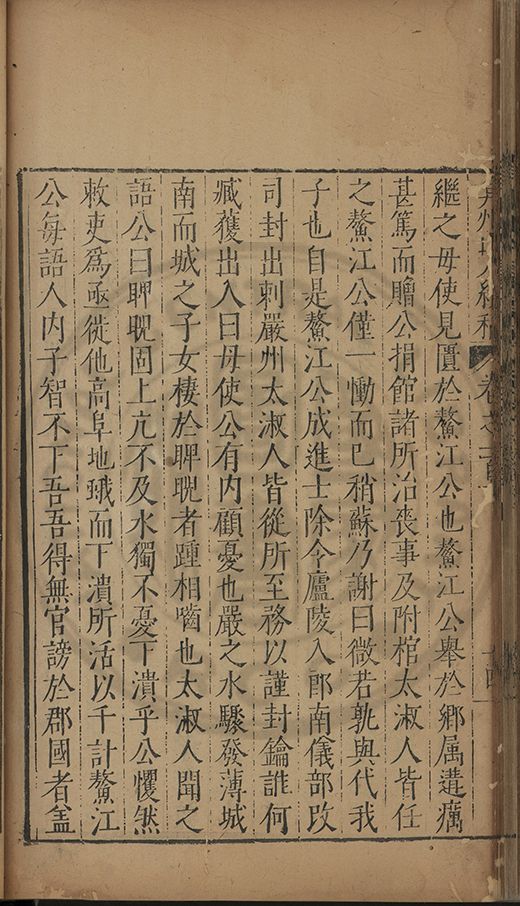 弇州山人續稿 卷之一百 十四
繼之毋使見匱於鰲江公也鰲江公舉於郷属遘癘
甚篤而贈公捐館諸所治喪事及附棺太淑人皆任
之鰲江公僅一慟而巳稍蘇乃謝曰微若孰與代我
子也自是鰲江公成進士除令廬陵入郎南儀部改
司封出刺嚴州太淑人皆從所至務以謹封鑰誰何
臧獲出入曰毋使公有内顧憂也嚴之水驟發薄城
南而城之子女棲於睥睨者踵相嚙也太淑人聞之
語公曰睥睨固上亢不及水獨不憂下潰乎公懼然
敕吏爲亟從他高阜地蛾而下潰所活以千計鰲江
公每語人内子智不下吾吾得無官謗於郡國者盖